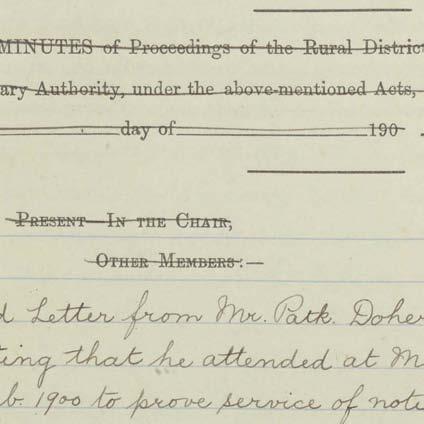 MINUTES of Proceedings of the Rural Distric
ary Authority, under the above-mentioned Acts,
day of 190 .
PRESENT—IN THE CHAIR,
OTHER MEMBERS:—
d Letter from Mr. Patk. Doher
ting that he attended at M
b. 1900 to prove service of noti